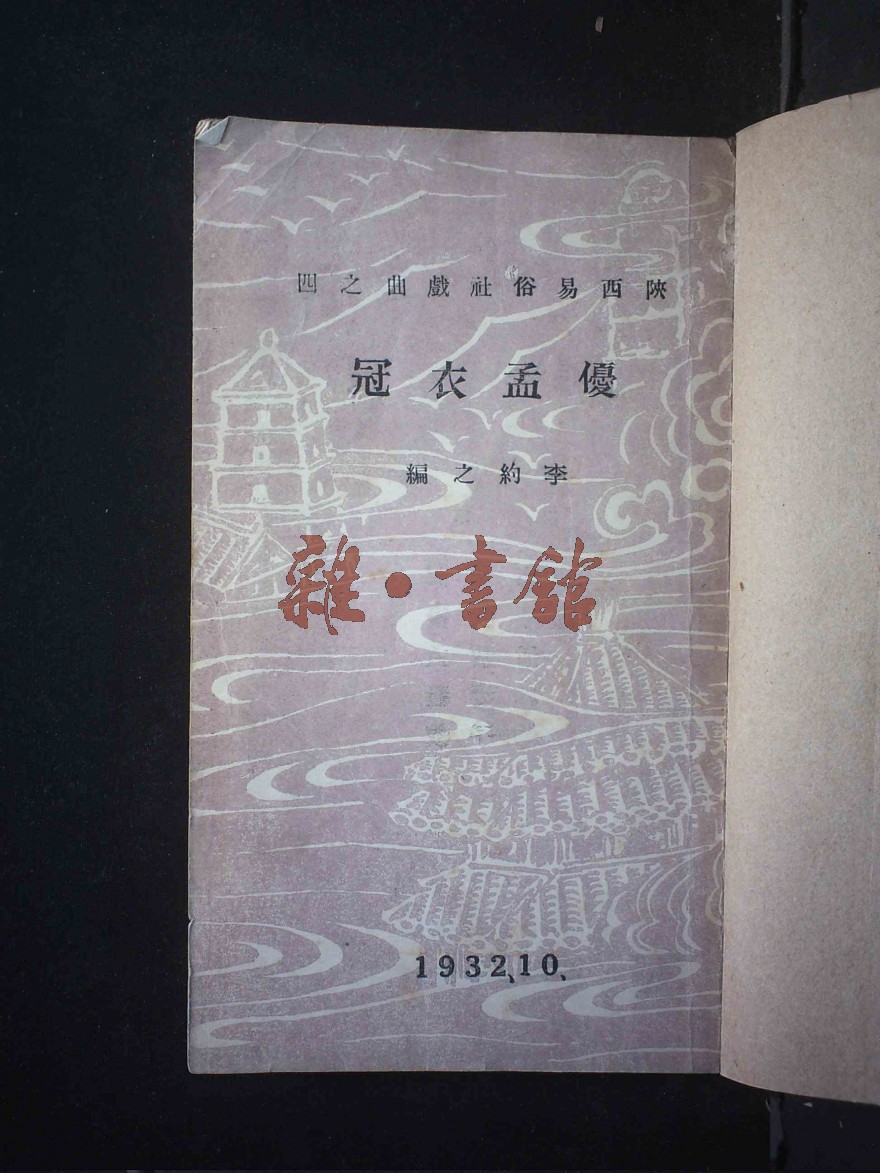 陝西易俗社戲曲之四
優孟衣冠
李約之編
雜·書館
1932、10、